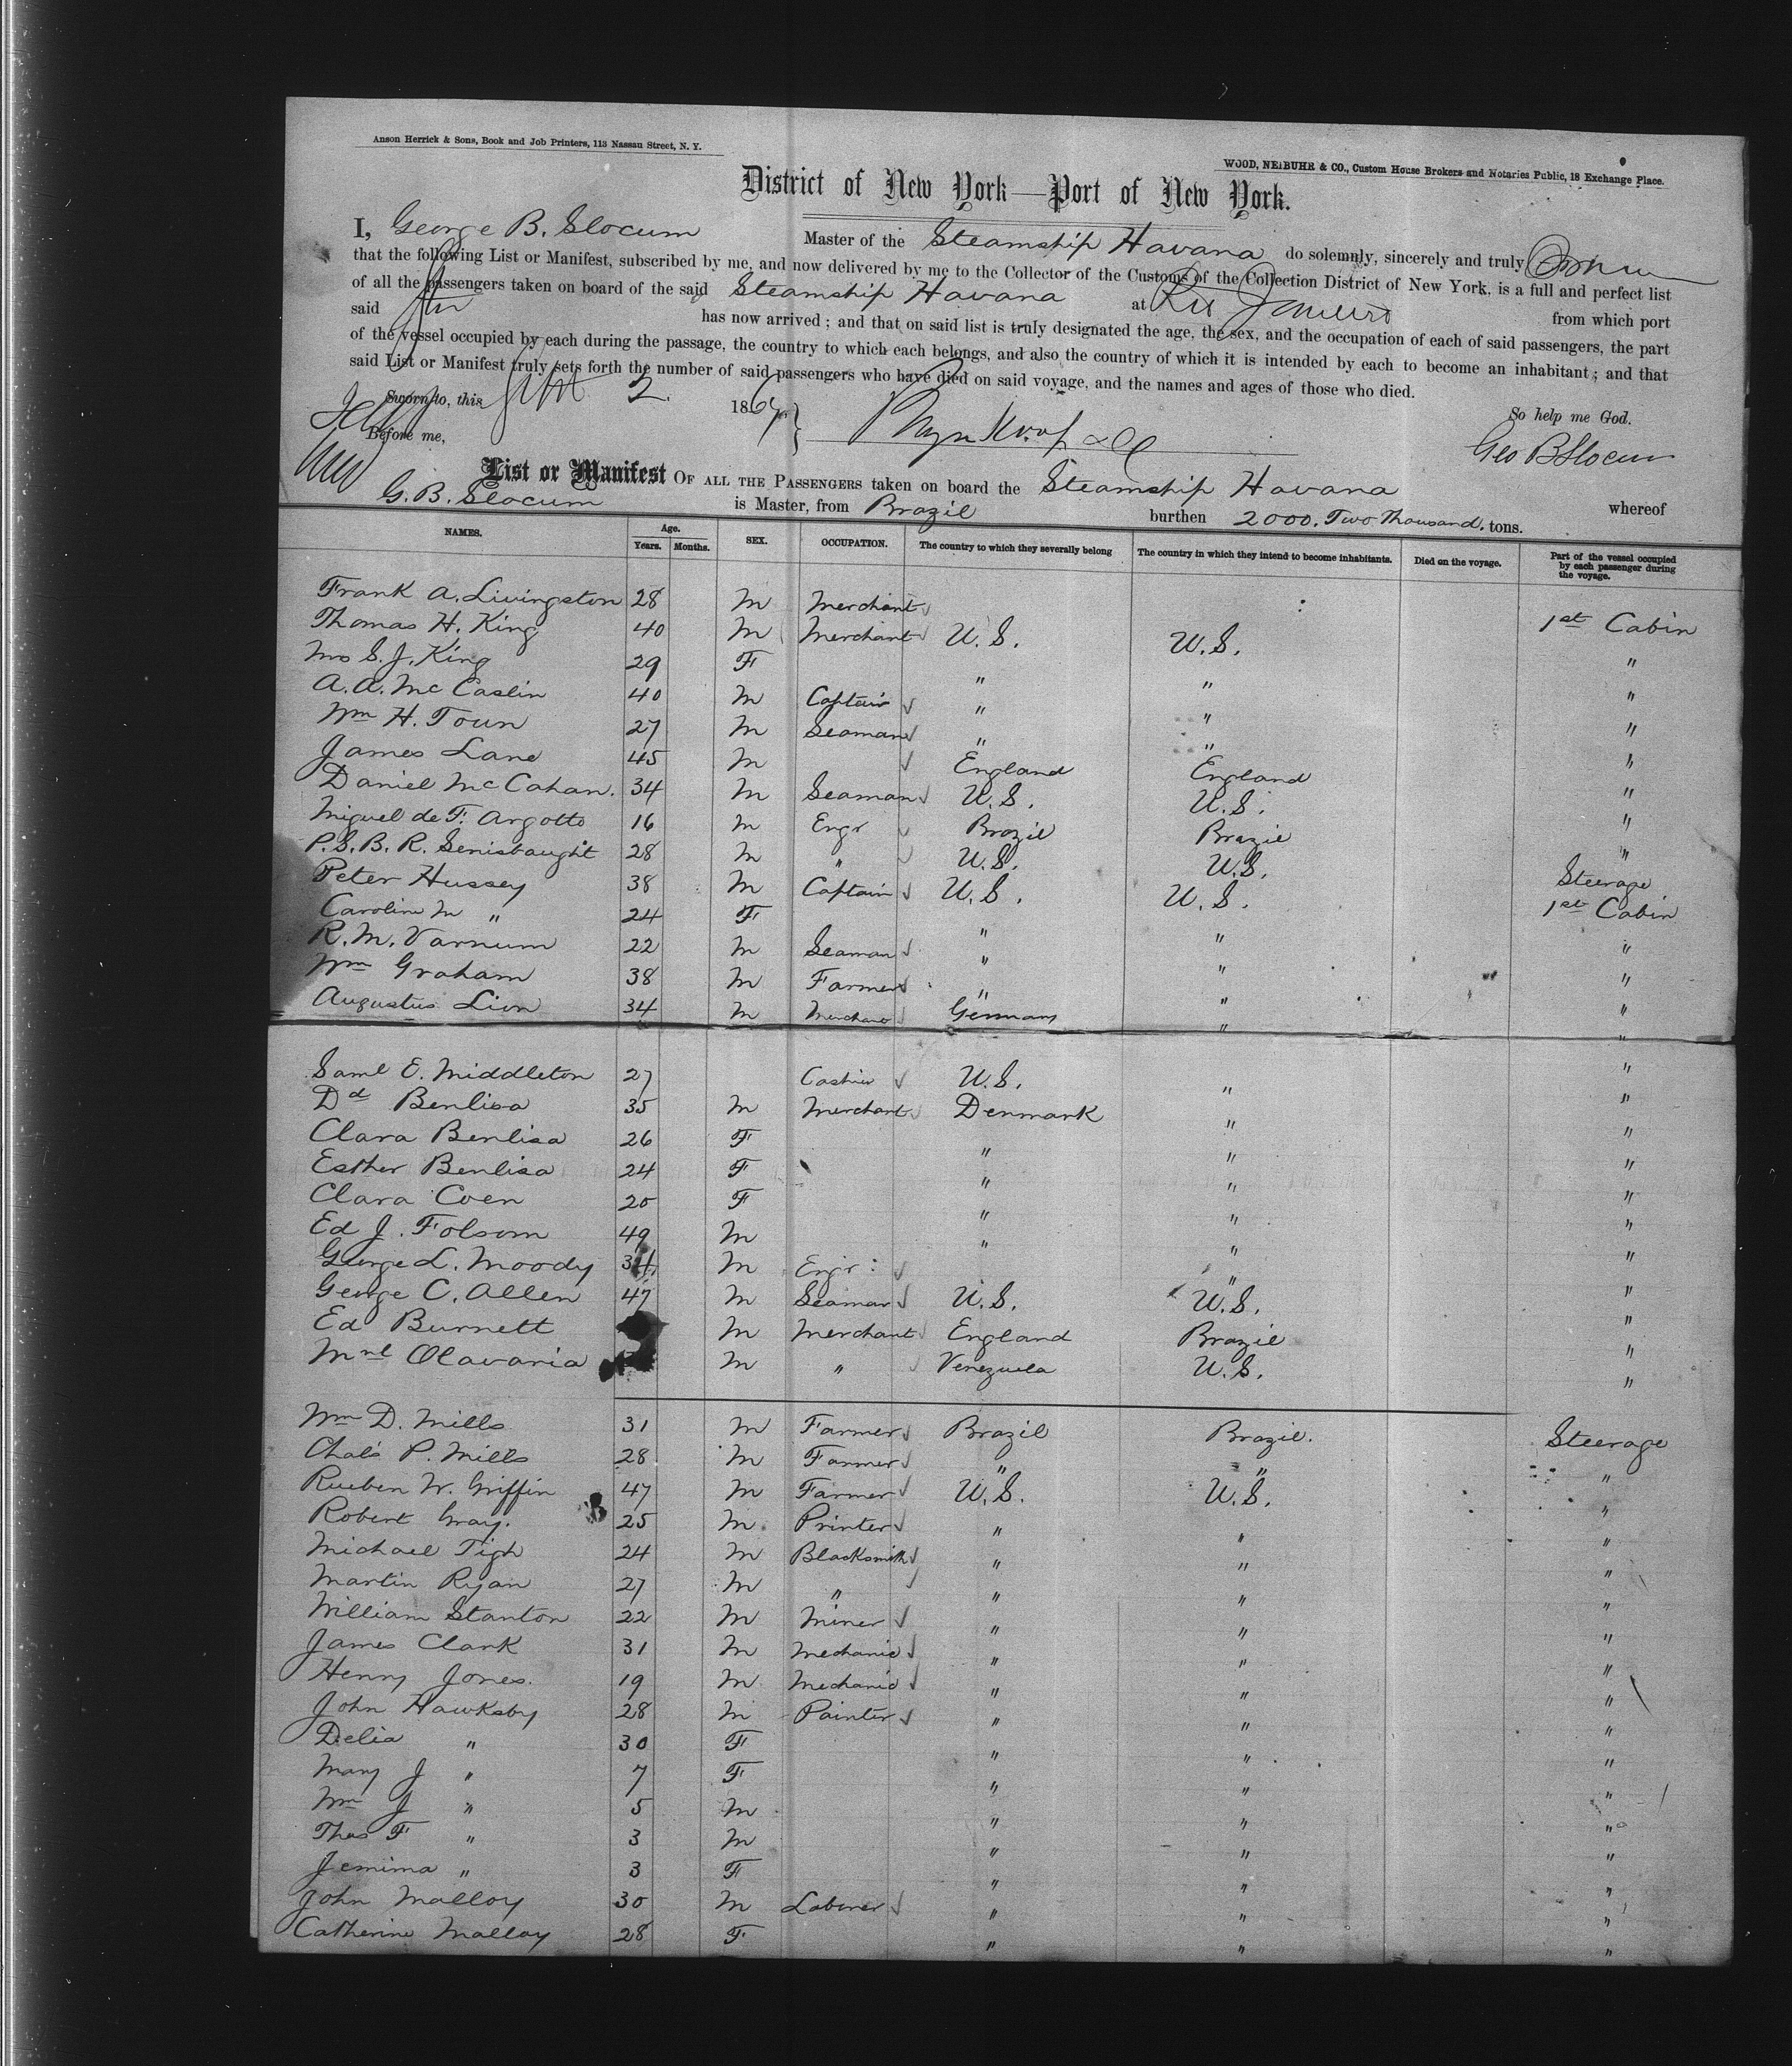 Anson Herrick & Sons, Book and Job Printers, 113 Nassau Street, N. Y.
WOOD, NEIBUHR & CO., Custom House Brokers and Notaries Public, 18 Exchange Place.
District of New York—Port of New York.
I, George B. Slocum Master of the Steamship Havana do solemnly, sincerely and truly
that the following List or Manifest, subscribed by me, and now delivered by me to the Collector of the Customs of the Collection District of New York, is a full and perfect list
of all the passengers taken on board of the said Steamship Havana at Rio Janeiro from which port
said has now arrived; and that on said list is truly designated the age, the sex, and the occupation of each of said passengers, the part
of the vessel occupied by each during the passage, the country to which each belongs, and also the country of which it is intended by each to become an inhabitant; and that
said List or Manifest truly sets forth the number of said passengers who have died on said voyage, and the names and ages of those who died.
Sworn to, this 2. 186 So help me God.
Before me, Geo B Slocum
List or Manifest OF ALL THE PASSENGERS taken on board the Steamship Havana whereof
G. B. Slocum is Master, from Brazil burthen 2000. Two Thousand. tons.
NAMES. Age. Years. Months. SEX. OCCUPATION. The country to which they severally belong The country in which they intend to become inhabitants. Died on the voyage. Part of the vessel occupied by each passenger during the voyage.
Frank A. Livingston 28 M Merchant
Thomas H. King 40 M Merchant U.S. U.S. 1st Cabin
Mrs S. J. King 29 F " " "
A. A. McCaslin 40 M Captain " " "
Wm H. Toun 27 M Seaman " " "
James Lane 45 M England England "
Daniel McCahan. 34 M Seaman U.S. U.S. "
Miguel de F. Argotto 16 M Engr Brazil Brazil "
P. S. B. R. Senisbaught 28 M " U.S. U.S. "
Peter Hussey 38 M Captain U.S. U.S. Steerage
Caroline M " 24 F " " 1st Cabin
R. M. Varnum 22 M Seaman " " "
Wm Graham 38 M Farmer " " "
Augustus Lion 34 M Merchant Germany " "
Saml E. Middleton 27 Cashier U.S. " "
Dd Benlisa 35 M Merchant Denmark " "
Clara Benlisa 26 F " " "
Esther Benlisa 24 F " " "
Clara Coen 20 F " " "
Ed J. Folsom 49 M " " "
George L. Moody 34 M Engr: " "
George C. Allen 47 M Seaman U.S. U.S. "
Ed Burnett M Merchant England Brazil "
Mnl Olavaria M " Venezuela U.S. "
Wm D. Mills 31 M Farmer Brazil Brazil. Steerage
Chals P. Mills 28 M Farmer " " "
Rueben W. Griffin 47 M Farmer U.S. U.S. "
Robert Gray. 25 M Printer " " "
Michael Tigh 24 M Blacksmith " " "
Martin Ryan 27 M " " " "
William Stanton 22 M Miner " " "
James Clark 31 M Mechanic " " "
Henry Jones. 19 M Mechanic " " "
John Hawksby 28 M Painter " " "
Delia " 30 F " " "
Mary J " 7 F " " "
Wm J " 5 M " " "
Thos F " 3 M " " "
Jemima " 3 F " " "
John Malloy 30 M Laborer " " "
Catherine Malloy 28 F " " "